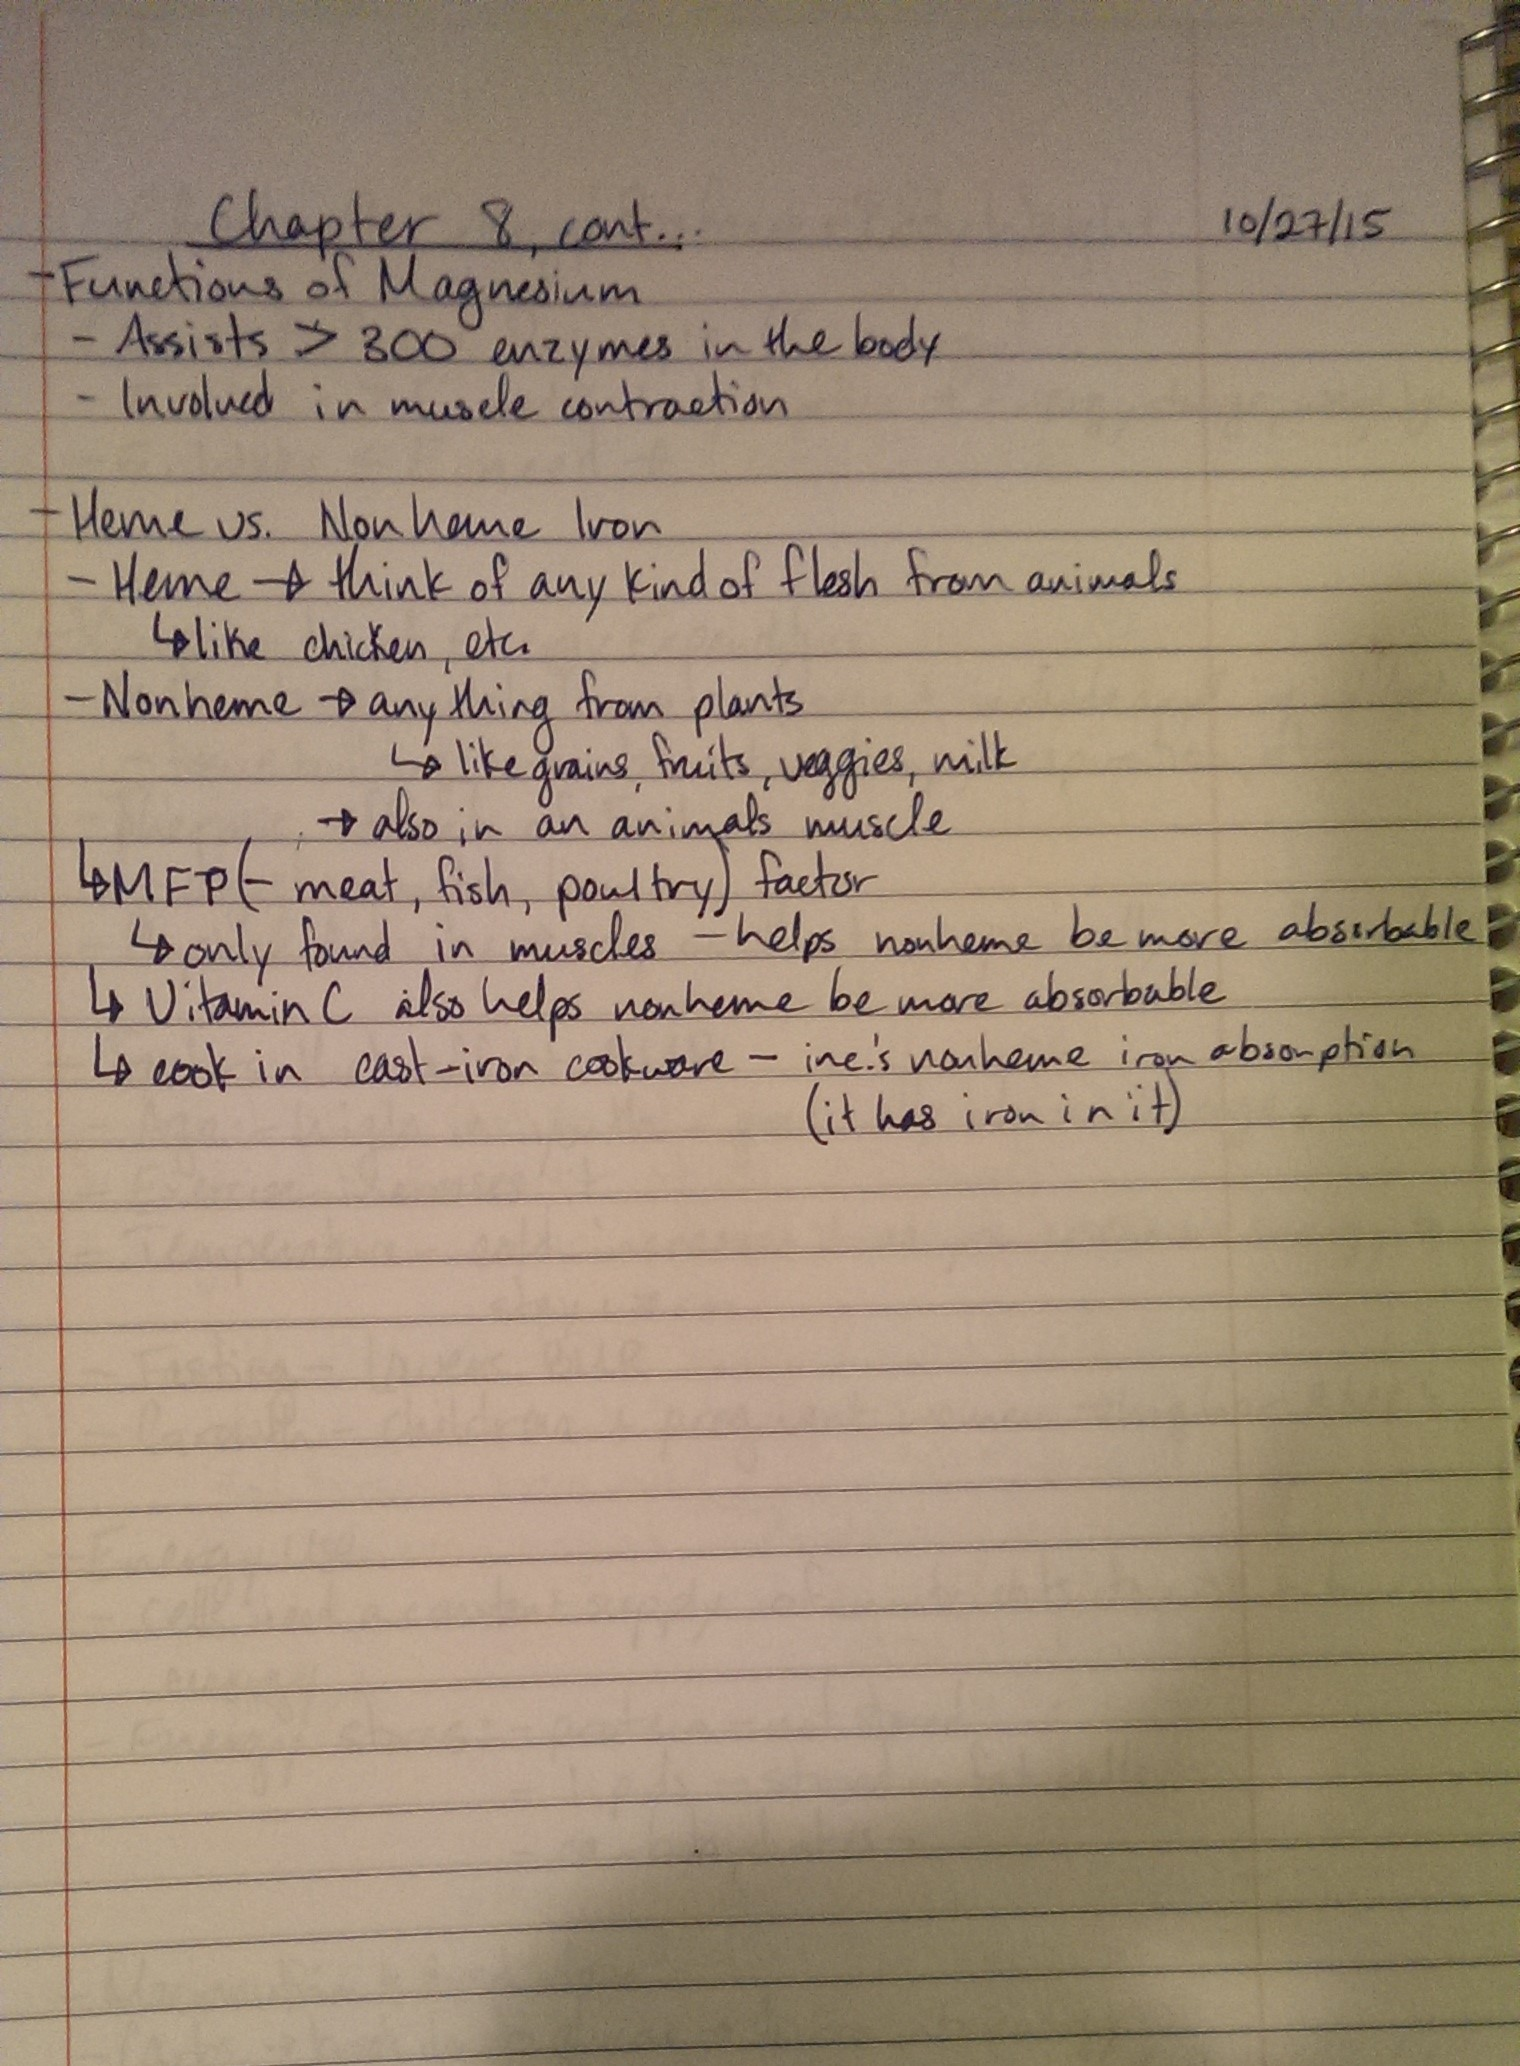 Chapter 8, cont...
10/27/15
- Functions of Magnesium
- Assists > 300 enzymes in the body
- Involved in muscle contraction
- Heme vs. Nonheme Iron
- Heme → think of any kind of flesh from animals
↳ like chicken, etc.
- Nonheme → anything from plants
↳ like grains, fruits, veggies, milk
→ also in an animals muscle
↳ MFP (- meat, fish, poultry) factor
↳ only found in muscles - helps nonheme be more absorbable
↳ Vitamin C also helps nonheme be more absorbable
↳ cook in cast-iron cookware - inc.'s nonheme iron absorption
(it has iron in it)